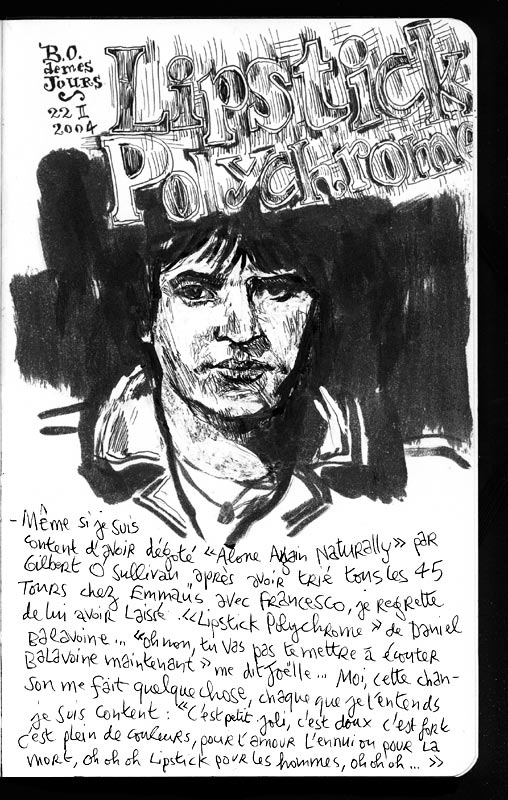 B.O.
de mes
JOURS
22 II
2004
Lipstick
Polychrome
- Même si je suis
content d'avoir dégoté « Alone Again Naturally » par
Gilbert O'Sullivan après avoir trié tous les 45
Tours chez Emmaüs avec Francesco, je regrette
de lui avoir Laissé « Lipstick Polychrome » de Daniel
Balavoine... "oh non, tu vas pas te mettre à écouter
Balavoine maintenant » me dit Joëlle... Moi, cette chan-
son me fait quelque chose, chaque que je l'entends
je suis content : "C'est petit joli, c'est doux c'est fort
c'est plein de couleurs, pour l'amour l'ennui ou pour la
mort, oh oh oh Lipstick pour les hommes, oh oh oh ... »